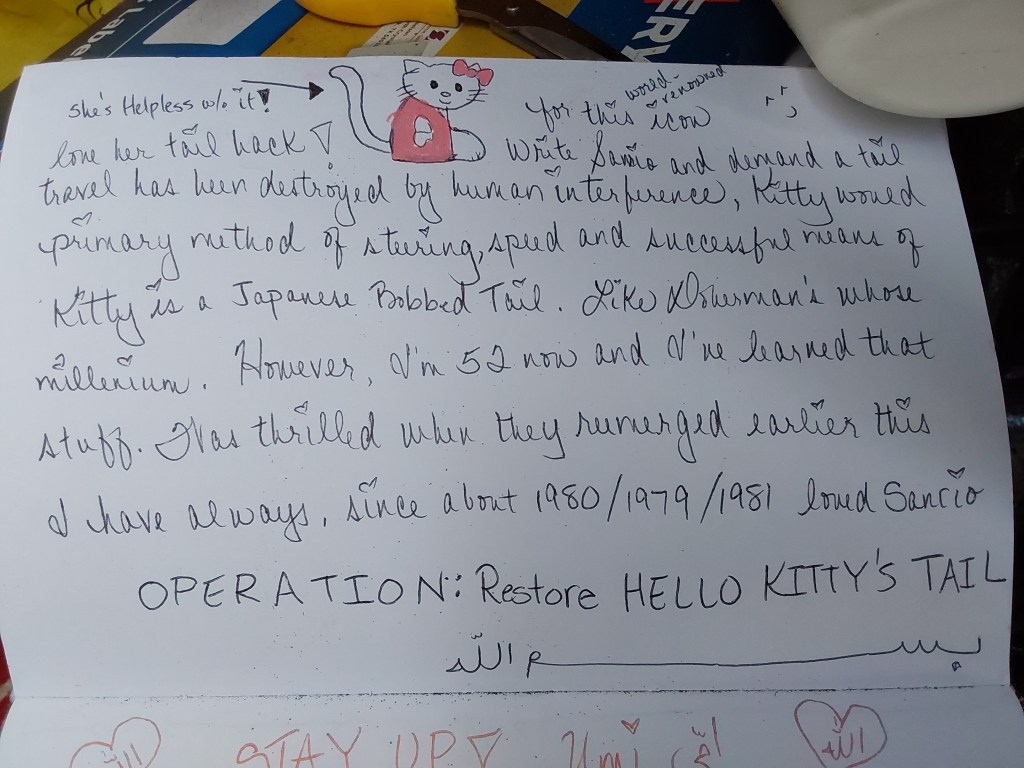 بسم الله
OPERATION: Restore HELLO KITTY'S TAIL
I have always, since about 1980/1979/1981 loved Sanrio
stuff. I was thrilled when they reemerged earlier this
millenium. However, I'm 52 now and I've learned that
Kitty is a Japanese Bobbed Tail. Like Doberman's whose
primary method of steering, speed and successful means of
travel has been destroyed by human interference, Kitty would
love her tail back! Write Sanrio and demand a tail
for this world-renowned icon
she's Helpless w/o it!
الله STAY UP! Umi الله
Label
ERY